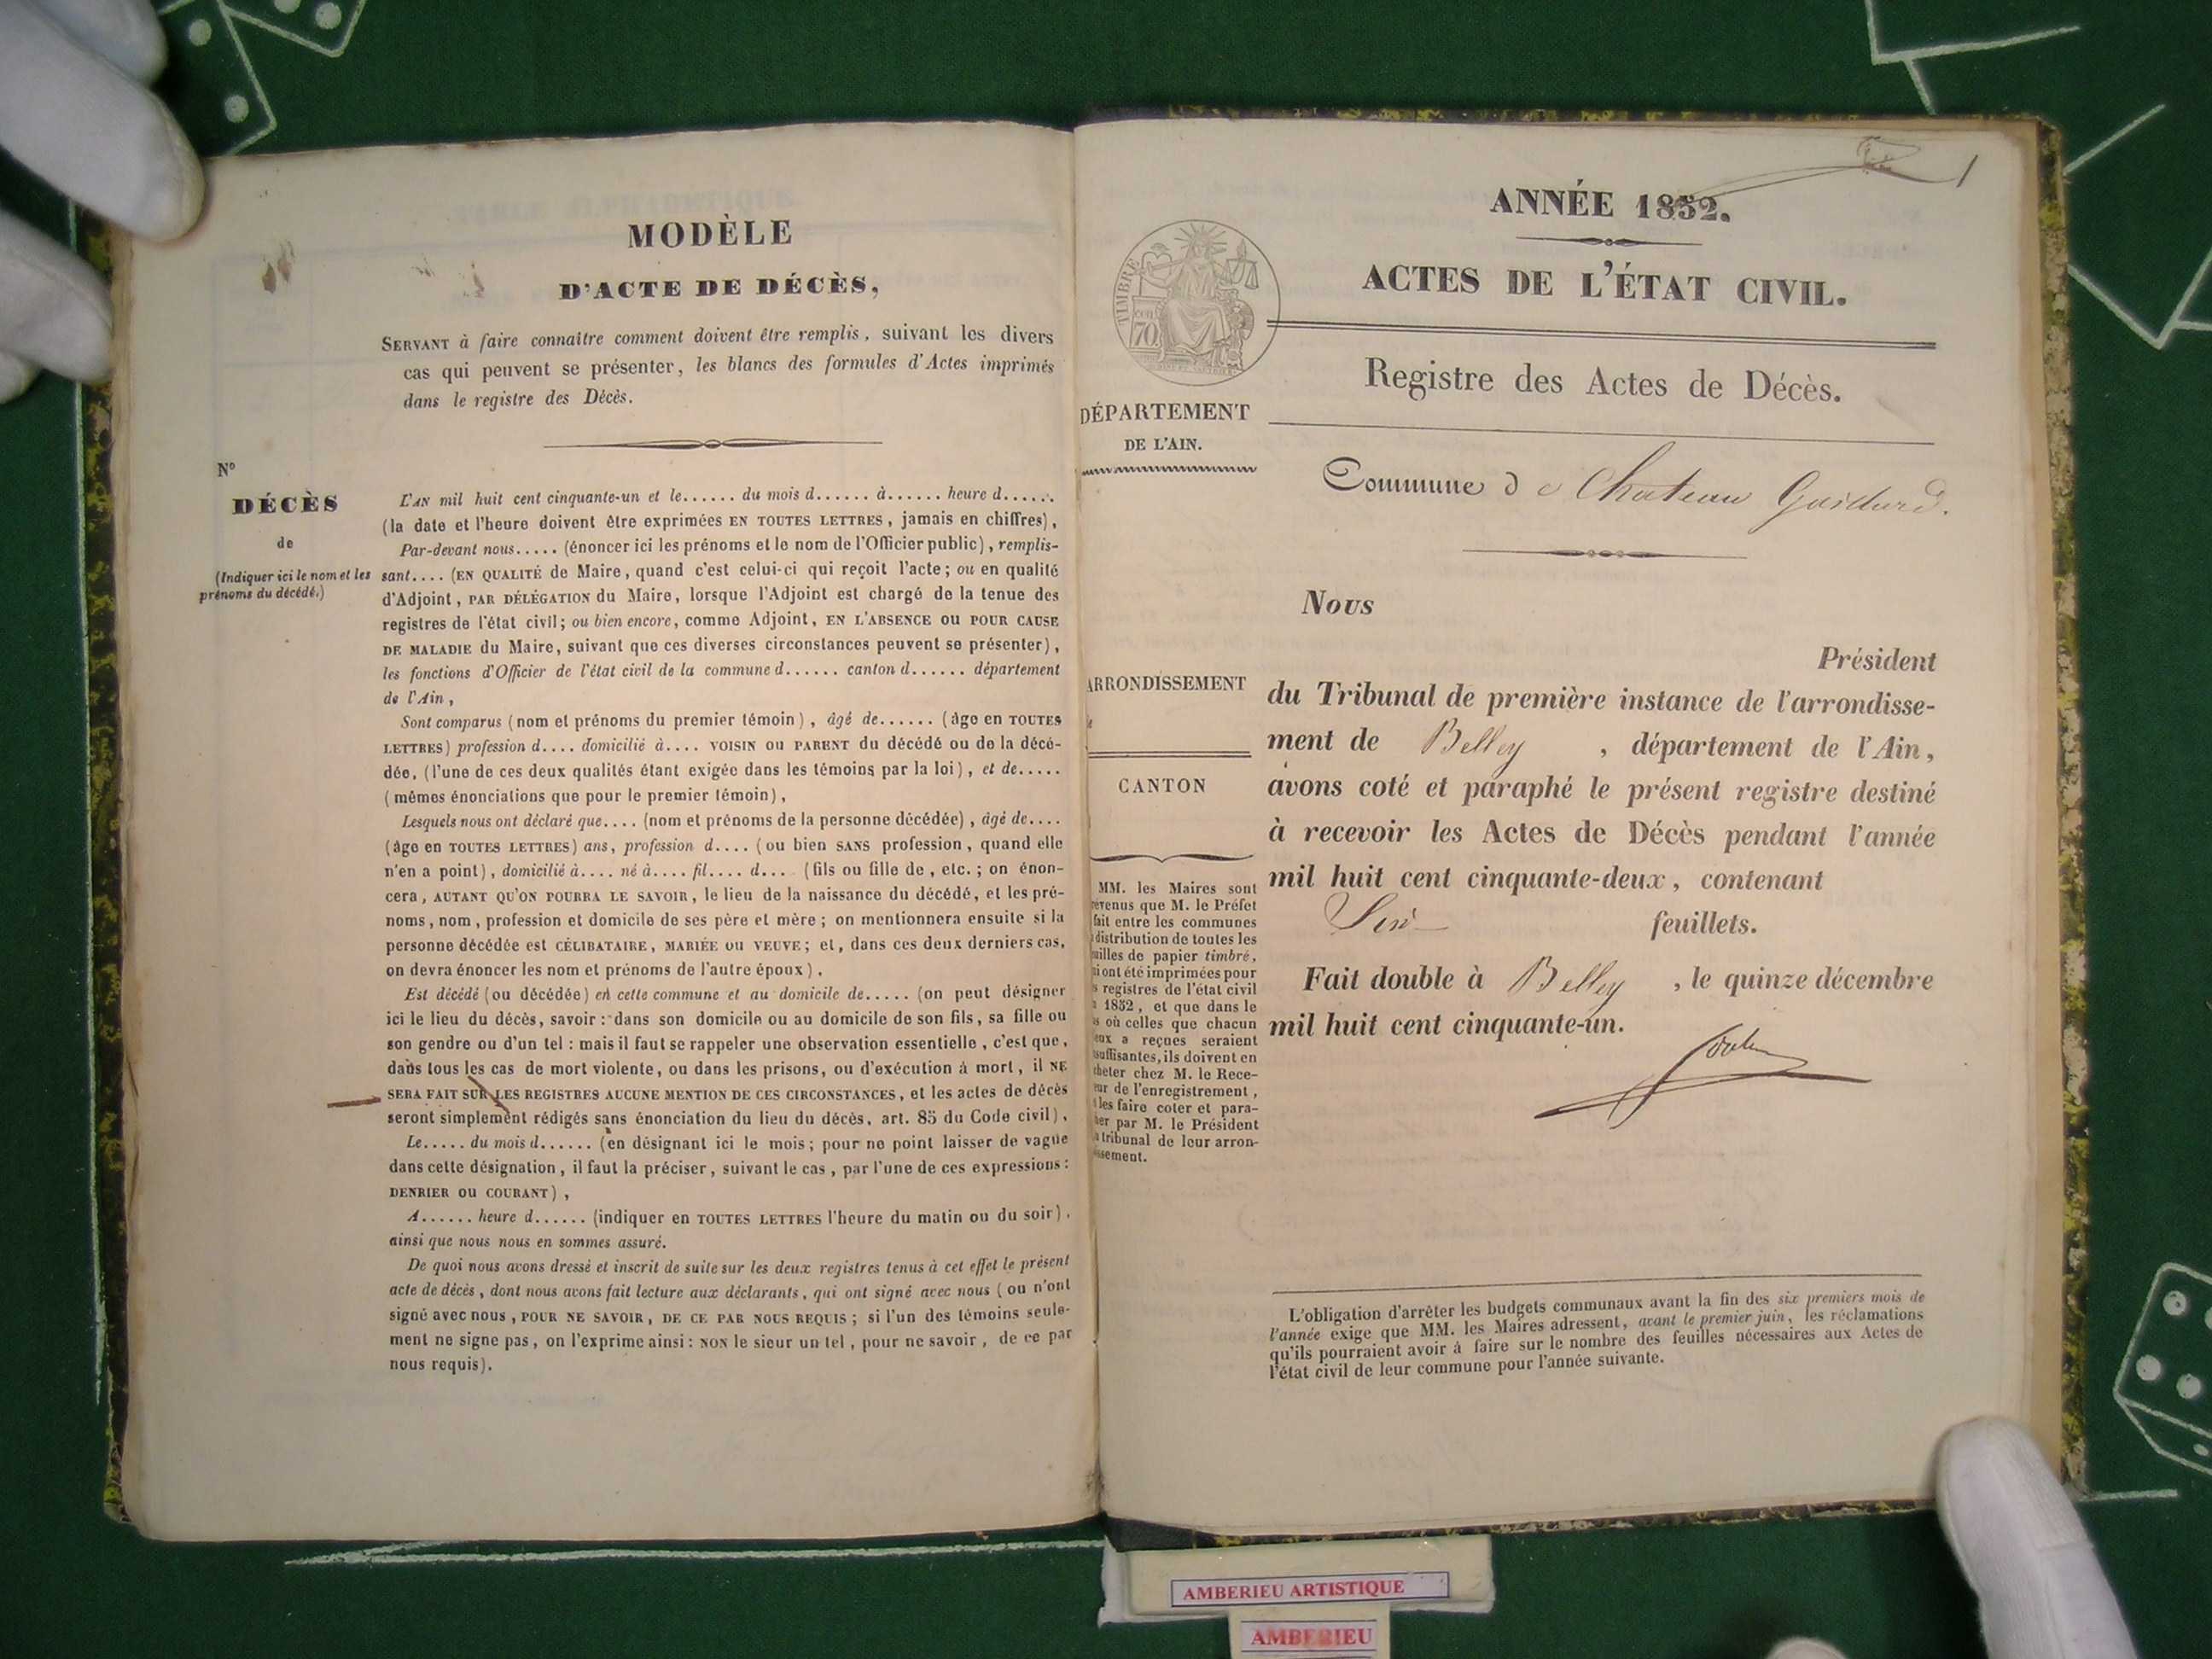 MODÈLE
D'ACTE DE DÉCÈS,
SERVANT à faire connaître comment doivent être remplis, suivant les divers
cas qui peuvent se présenter, les blancs des formules d'Actes imprimés
dans le registre des Décès.
N°
DÉCÈS
de
(Indiquer ici le nom et les
prénoms du décédé.)
L'AN mil huit cent cinquante-un et le...... du mois d...... à...... heure d......
(la date et l'heure doivent être exprimées EN TOUTES LETTRES, jamais en chiffres),
Par-devant nous..... (énoncer ici les prénoms et le nom de l'Officier public), remplis-
sant.... (EN QUALITÉ de Maire, quand c'est celui-ci qui reçoit l'acte; ou en qualité
d'Adjoint, PAR DÉLÉGATION du Maire, lorsque l'Adjoint est chargé de la tenue des
registres de l'état civil; ou bien encore, comme Adjoint, EN L'ABSENCE OU POUR CAUSE
DE MALADIE du Maire, suivant que ces diverses circonstances peuvent se présenter),
les fonctions d'Officier de l'état civil de la commune d...... canton d...... département
de l'Ain,
Sont comparus (nom et prénoms du premier témoin), âgé de...... (âge en TOUTES
LETTRES) profession d.... domicilié à.... VOISIN OU PARENT du décédé ou de la décé-
dée, (l'une de ces deux qualités étant exigée dans les témoins par la loi), et de.....
(mêmes énonciations que pour le premier témoin),
Lesquels nous ont déclaré que.... (nom et prénoms de la personne décédée), âgé de....
(âge en TOUTES LETTRES) ans, profession d.... (ou bien SANS profession, quand elle
n'en a point), domicilié à.... né à.... fil.... d.... (fils ou fille de, etc.; on énon-
cera, AUTANT QU'ON POURRA LE SAVOIR, le lieu de la naissance du décédé, et les pré-
noms, nom, profession et domicile de ses père et mère; on mentionnera ensuite si la
personne décédée est CÉLIBATAIRE, MARIÉE OU VEUVE; et, dans ces deux derniers cas,
on devra énoncer les nom et prénoms de l'autre époux).
Est décédé (ou décédée) en cette commune et au domicile de..... (on peut désigner
ici le lieu du décès, savoir: dans son domicile ou au domicile de son fils, sa fille ou
son gendre ou d'un tel: mais il faut se rappeler une observation essentielle, c'est que,
dans tous les cas de mort violente, ou dans les prisons, ou d'exécution à mort, il NE
SERA FAIT SUR LES REGISTRES AUCUNE MENTION DE CES CIRCONSTANCES, et les actes de décès
seront simplement rédigés sans énonciation du lieu du décès, art. 85 du Code civil),
Le..... du mois d...... (en désignant ici le mois; pour ne point laisser de vague
dans cette désignation, il faut la préciser, suivant le cas, par l'une de ces expressions:
DERNIER OU COURANT),
A...... heure d...... (indiquer en TOUTES LETTRES l'heure du matin ou du soir),
ainsi que nous nous en sommes assuré.
De quoi nous avons dressé et inscrit de suite sur les deux registres tenus à cet effet le présent
acte de décès, dont nous avons fait lecture aux déclarants, qui ont signé avec nous (ou n'ont
signé avec nous, POUR NE SAVOIR, DE CE PAR NOUS REQUIS; si l'un des témoins seule-
ment ne signe pas, on l'exprime ainsi: NON le sieur un tel, pour ne savoir, de ce par
nous requis).
1
ANNÉE 1852.
ACTES DE L'ÉTAT CIVIL.
Registre des Actes de Décès.
TIMBRE
70
DÉPARTEMENT
DE L'AIN.
Commune de Chateau Gaillard.
Nous
Président
du Tribunal de première instance de l'arrondisse-
ment de Belley, département de l'Ain,
avons coté et paraphé le présent registre destiné
à recevoir les Actes de Décès pendant l'année
mil huit cent cinquante-deux, contenant
Six feuillets.
Fait double à Belley, le quinze décembre
mil huit cent cinquante-un.
ARRONDISSEMENT
CANTON
MM. les Maires sont
révenus que M. le Préfet
fait entre les communes
distribution de toutes les
uilles de papier timbré,
i ont été imprimées pour
s registres de l'état civil
1852, et que dans le
s où celles que chacun
eux a reçues seraient
suffisantes, ils doivent en
cheter chez M. le Rece-
eur de l'enregistrement,
les faire coter et para-
her par M. le Président
tribunal de leur arron-
issement.
L'obligation d'arrêter les budgets communaux avant la fin des six premiers mois de
l'année exige que MM. les Maires adressent, avant le premier juin, les réclamations
qu'ils pourraient avoir à faire sur le nombre des feuilles nécessaires aux Actes de
l'état civil de leur commune pour l'année suivante.
AMBERIEU ARTISTIQUE
AMBERIEU